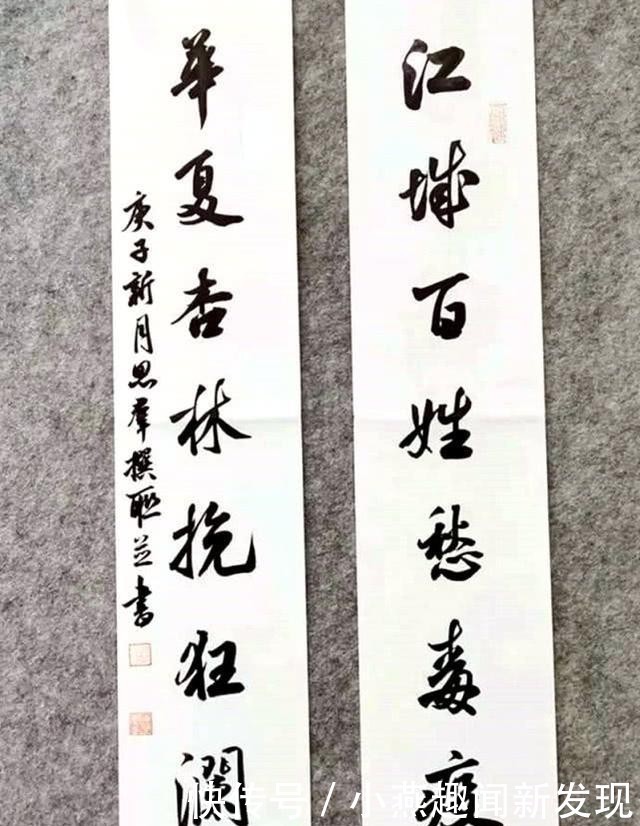 江城百姓愁毒疫
华夏杏林挽狂澜
庚子新月思群撰联并书
快传号 / 小燕趣闻新发现